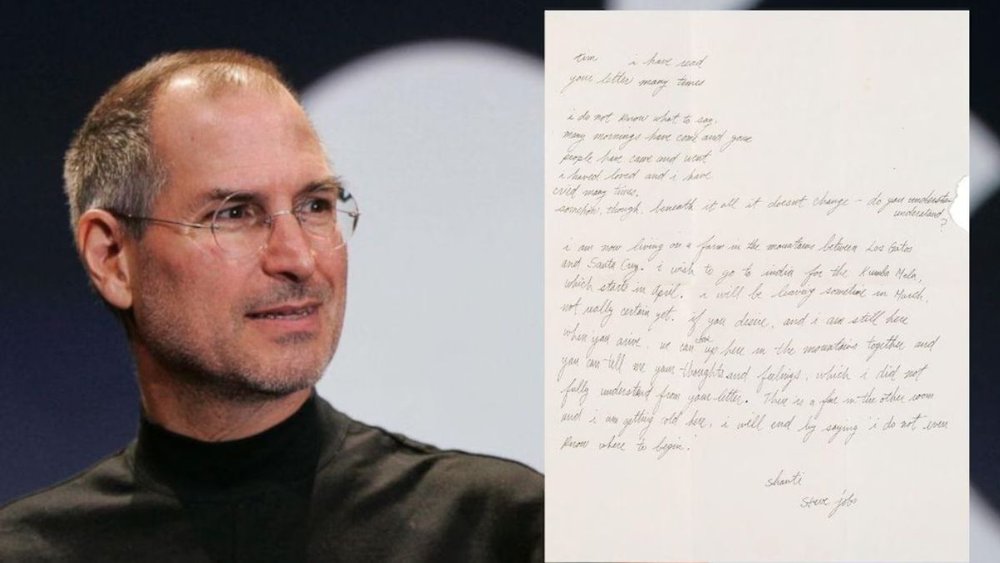 tim i have read
your letter many times
i do not know what to say.
many mornings have come and gone
people have came and went
i haved loved and i have
cried many times.
somehow, though, beneath it all it doesn't change - do you understand
understand?
i am now living on a farm in the mountains between Los Gatos
and Santa Cruz. i wish to go to india for the Kumba Mela,
which starts in april. i will be leaving sometime in March,
not really certain yet. if you desire, and i am still here
when you arive, we can up here in the mountains together and
you can tell me your thoughts and feelings, which i did not
fully understand from your letter. There is a fire in the other room
and i am getting cold here. i will end by saying i do not even
know where to begin.
shanti
steve jobs